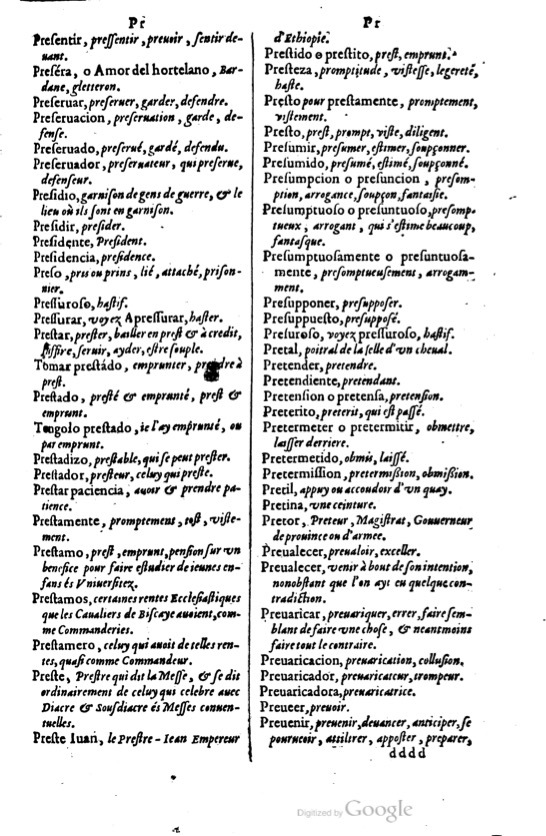 Pr
Preſentir, preſſentir, preuoir, ſentir de-
uant.
Preſéra, o Amor del hortelano, Bar-
dane, gletteron.
Preſeruar, preſeruer, garder, defendre.
Preſeruacion, preſeruation, garde, de-
fenſe.
Preſeruado, preſerué, gardé, defendu.
Preſeruador, preſeruateur, qui preſerue,
defenſeur.
Preſidio, garniſon de gens de guerre, & le
lieu où ils ſont en garniſon.
Preſidir, preſider.
Preſidente, Preſident.
Preſidencia, preſidence.
Preſo, pris ou prins, lié, attaché, priſon-
nier.
Preſſuroſo, haſtif.
Preſſurar, voyez Apreſſurar, haſter.
Preſtar, preſter, bailler en preſt & à credit,
ſuffire, ſeruir, ayder, eſtre ſouple.
Tomar preſtádo, emprunter, prendre à
preſt.
Preſtado, preſté & emprunté, preſt &
emprunt.
Tengolo preſtado, ie l'ay emprunté, ou
par emprunt.
Preſtadizo, preſtable, qui ſe peut preſter.
Preſtador, preſteur, celuy qui preſte.
Preſtar paciencia, auoir & prendre pa-
tience.
Preſtamente, promptement, toſt, viſte-
ment.
Preſtamo, preſt, emprunt, penſion ſur vn
benefice pour faire eſtudier de ieunes en-
fans és Vniuerſitez.
Preſtamos, certaines rentes Eccleſiaſtiques
que les Caualiers de Biſcaye auoient, com-
me Commanderies.
Preſtamero, celuy qui auoit de telles ren-
tes, quaſi comme Commandeur.
Preſte, Preſtre qui dit la Meſſe, & ſe dit
ordinairement de celuy qui celebre auec
Diacre & Souſdiacre és Meſſes conuen-
tuelles.
Preſte Iuan, le Preſtre-Iean Empereur
Pr
d'Ethiopie.
Preſtido o preſtito, preſt, emprunt.
Preſteza, promptitude, viſteſſe, legereté,
haſte.
Preſto pour preſtamente, promptement,
viſtement.
Preſto, preſt, prompt, viſte, diligent.
Preſumir, preſumer, eſtimer, ſoupçonner.
Preſumido, preſumé, eſtimé, ſoupçonné.
Preſumpcion o preſuncion, preſom-
ption, arrogance, ſoupçon, fantaiſie.
Preſumptuoſo o preſuntuoſo, preſomp-
tueux, arrogant, qui s'eſtime beaucoup,
fantaſque.
Preſumptuoſamente o preſuntuoſa-
mente, preſomptueuſement, arrogam-
ment.
Preſupponer, preſuppoſer.
Preſuppueſto, preſuppoſé.
Preſuroſo, voyez preſſuroſo, haſtif.
Pretal, poitral de la ſelle d'vn cheual.
Pretender, pretendre.
Pretendiente, pretendant.
Pretenſion o pretenſa, pretenſion.
Preterito, preterit, qui eſt paſſé.
Pretermeter o pretermitir, obmettre,
laiſſer derriere.
Pretermetido, obmis, laiſſé.
Pretermiſſion, pretermiſſion, obmiſſion.
Pretil, appuy ou accoudoir d'vn quay.
Pretina, vne ceinture.
Pretor, Preteur, Magiſtrat, Gouuerneur
de prouince ou d'armee.
Preualecer, preualoir, exceller.
Preualecer, venir à bout de ſon intention,
nonobſtant que l'on ayt eu quelque con-
tradiction.
Preuaricar, preuariquer, errer, faire ſem-
blant de faire vne choſe, & neantmoins
faire tout le contraire.
Preuaricacion, preuarication, colluſion.
Preuaricador, preuaricateur, trompeur.
Preuaricadora, preuaricatrice.
Preueer, preuoir.
Preuenir, preuenir, deuancer, anticiper, ſe
pouruoir, attiltrer, appoſter, preparer,
dddd
Digitized by Google